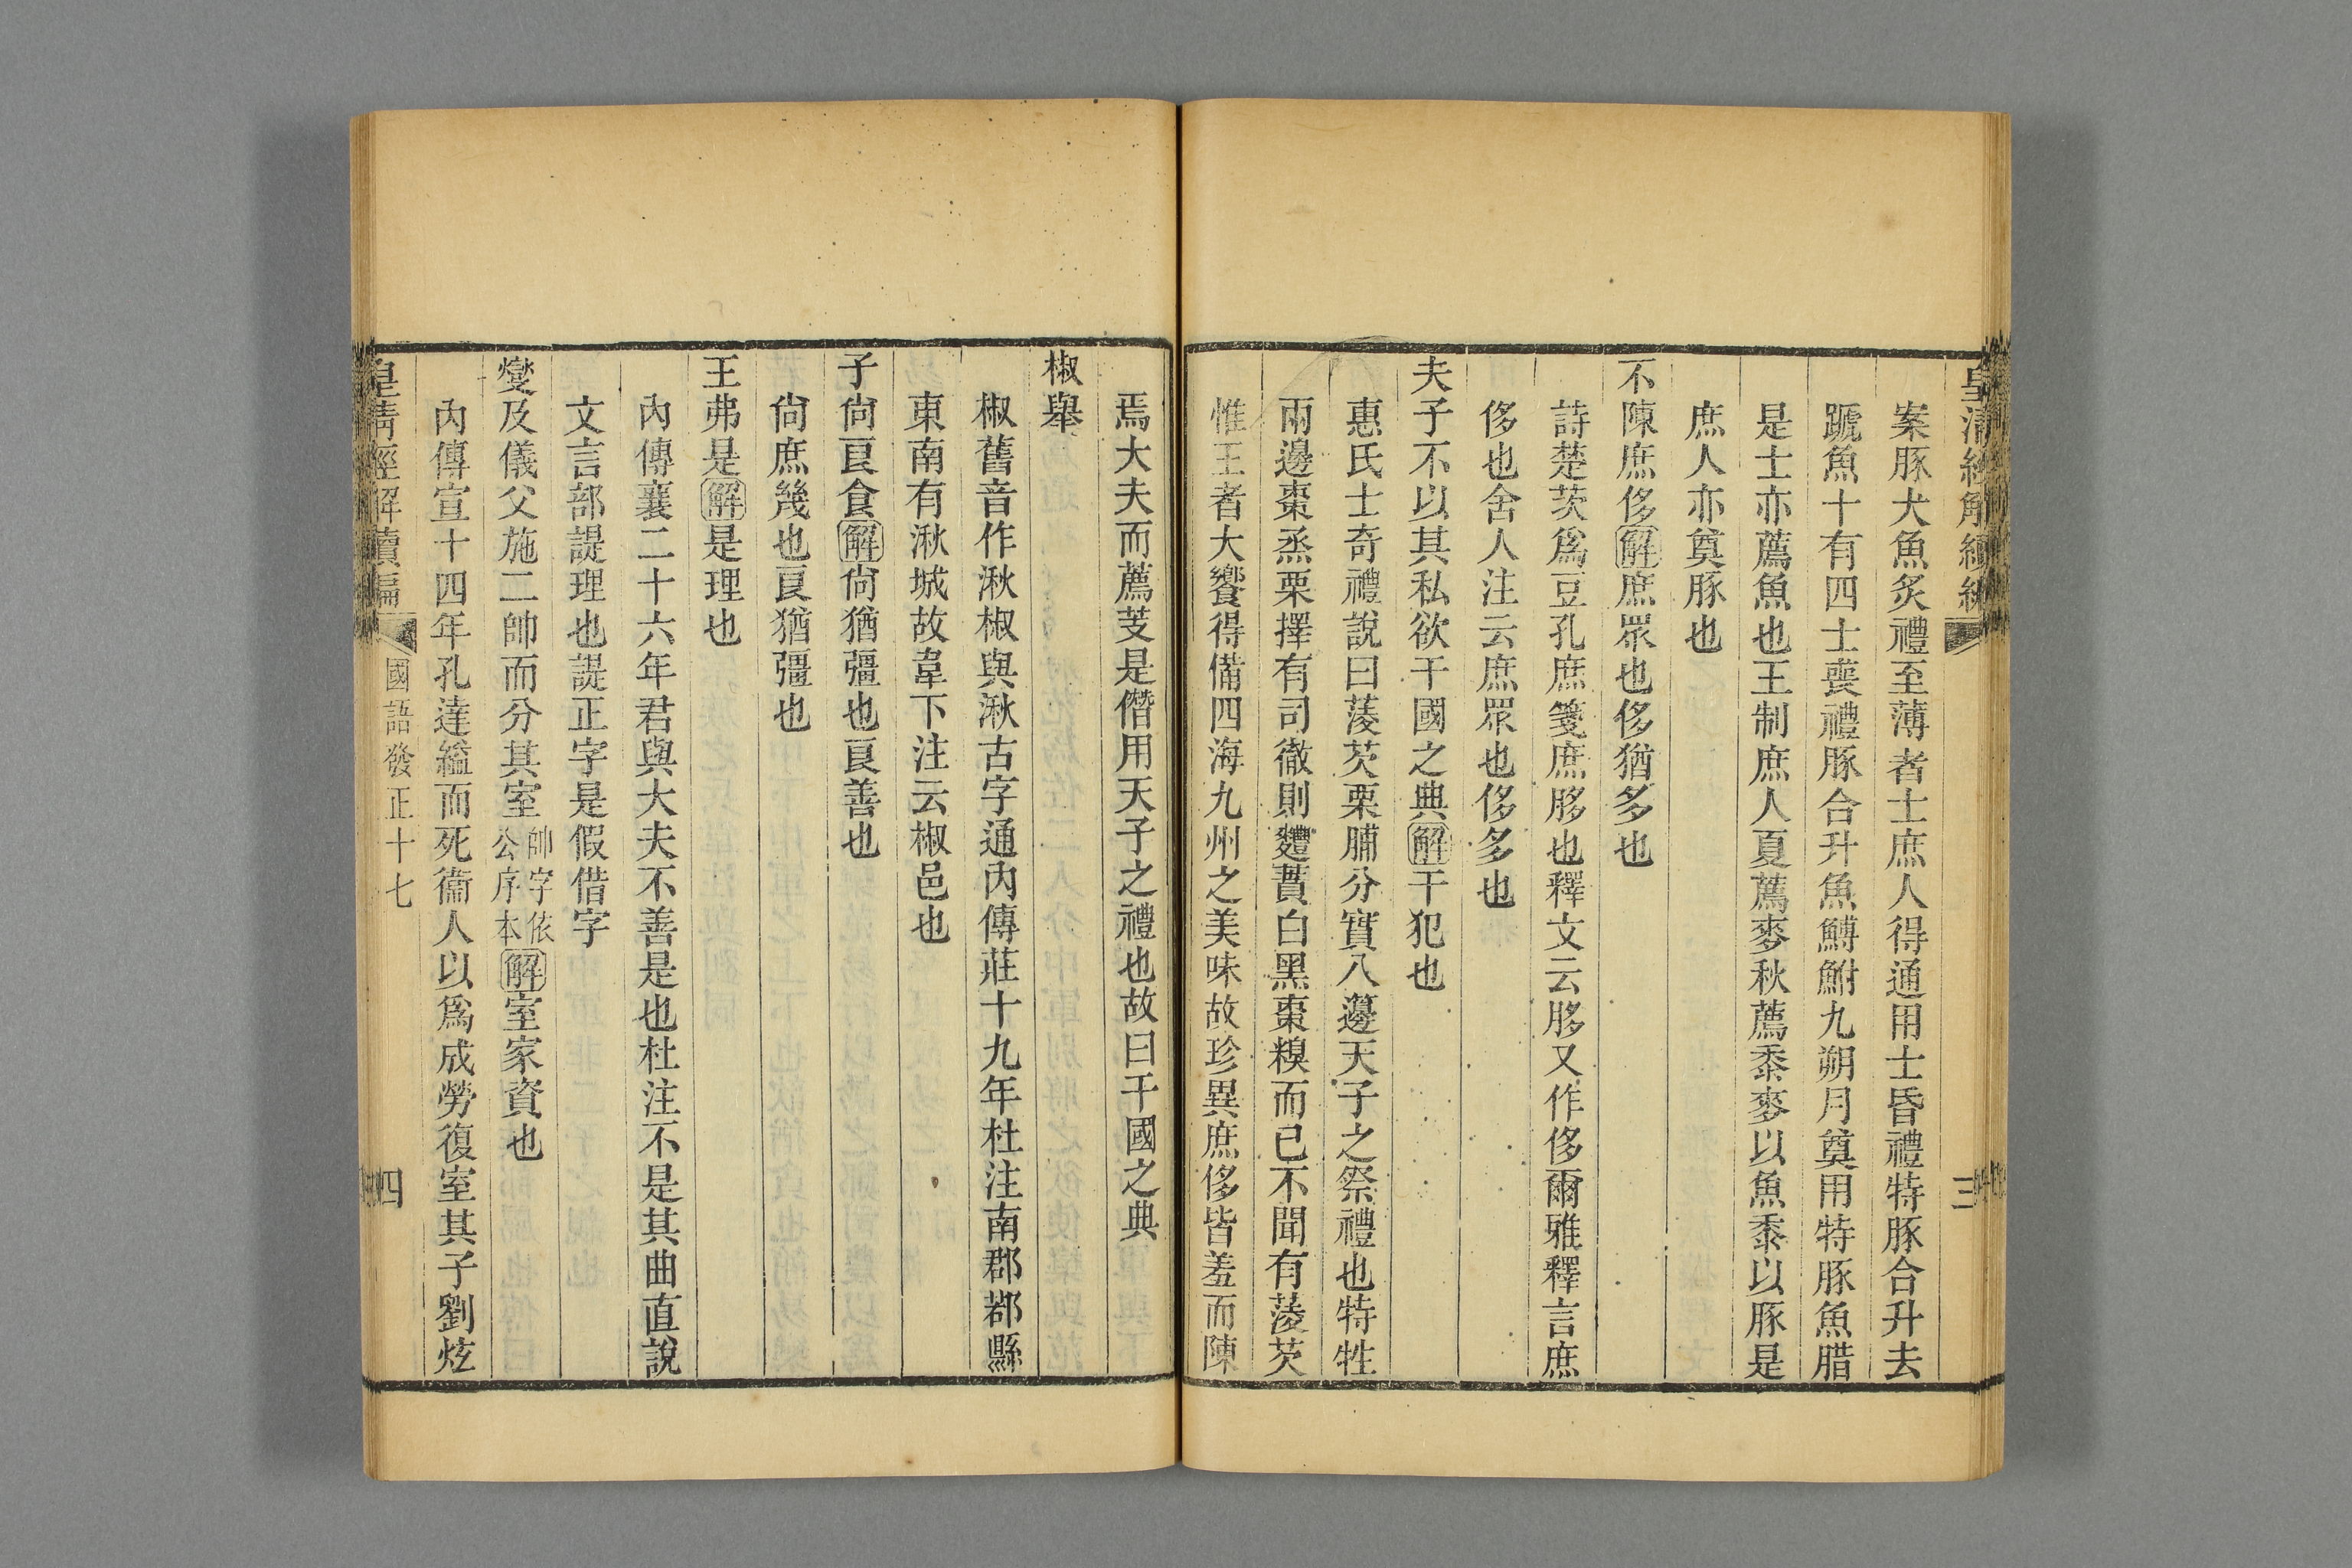 皇清經解續編
三
案豚犬魚炙禮至薄者士庶人得通用士昏禮特豚合升去
蹏魚十有四士喪禮豚合升魚鱄鮒九朔月奠用特豚魚腊
是士亦薦魚也王制庶人夏薦麥秋薦黍麥以魚黍以豚是
庶人亦奠豚也
不陳庶侈解庶眾也侈猶多也
詩楚茨爲豆孔庶箋庶𦚧也釋文云𦚧又作侈爾雅釋言庶
侈也舍人注云庶眾也侈多也
夫子不以其私欲干國之典解干犯也
惠氏士奇禮說曰蓤芡栗脯分實八籩天子之祭禮也特牲
兩邊棗烝栗擇有司徹則麷蕡白黑棗糗而已不聞有蓤芡
惟王者大饗得備四海九州之美味故珍異庶侈皆羞而陳
焉大夫而薦芰是僭用天子之禮也故曰干國之典
椒舉
椒舊音作湫椒與湫古字通內傳莊十九年杜注南郡鄀縣
東南有湫城故韋下注云椒邑也
子尙良食解尙猶彊也良善也
尙庶幾也良猶彊也
王弗是解是理也
內傳襄二十六年君與大夫不善是也杜注不是其曲直說
文言部諟理也諟正字是假借字
燮及儀父施二帥而分其室帥字依公序本解室家資也
內傳宣十四年孔達縊而死衞人以爲成勞復室其子劉炫
皇清經解續編
國語發正十七
四